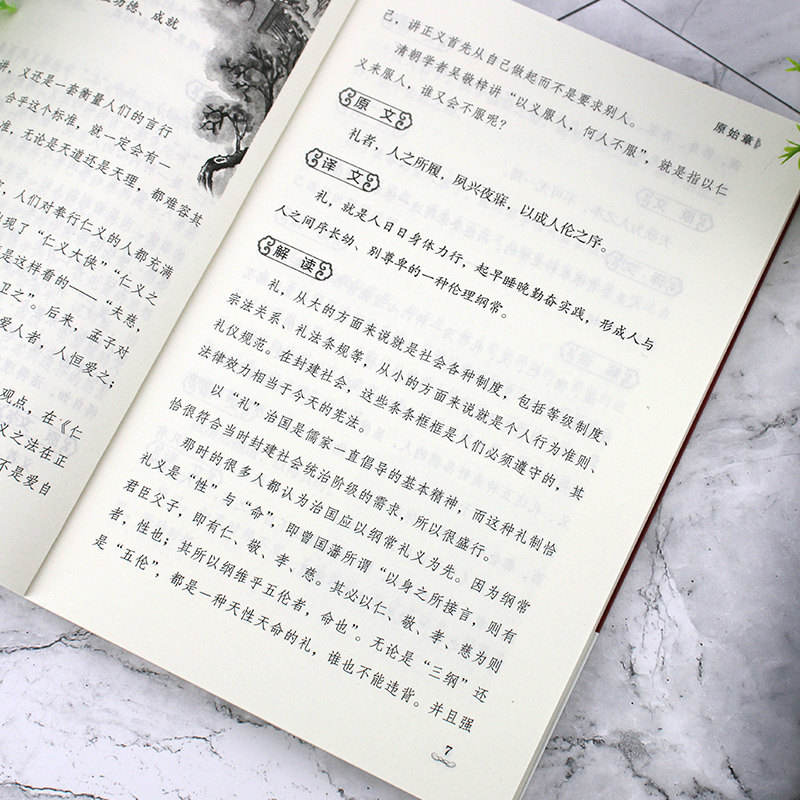 功德、成就
讲，义还是一套衡量人们的言行
合乎这个标准，就一定会有一
准，无论是天道还是天理，都难容其
人们对奉行仁义的人都充满
现了“仁义大侠”“仁义之
是这样看的——“未慈，
卫之”。后来，孟子对
爱人者，人恒爱之；
观点，在《仁
义之法在正
不是爱自
原始章
己，讲正义首先从自己做起而不是要求别人。
清朝学者吴敬梓讲“以义服人，何人不服”，就是指以仁
义来服人，谁又会不服呢？
原 文
礼者，人之所履，夙兴夜寐，以成人伦之序。
译 文
礼，就是人日日身体力行，起早睡晚勤奋实践，形成人与
人之间序长幼、别尊卑的一种伦理纲常。
解 读
礼，从大的方面来说就是社会各种制度，包括等级制度、
宗法关系、礼法条规等，从小的方面来说就是个人行为准则、
礼仪规范。在封建社会，这些条条框框是人们必须遵守的，其
法律效力相当于今天的宪法。
以“礼”治国是儒家一直倡导的基本精神，而这种礼制恰
恰很符合当时封建社会统治阶级的需求，所以很盛行。
那时的很多人都认为治国应以纲常礼义为先。因为纲常
礼义是“性”与“命”，即曾国藩所谓“以身之所接言，则有
君臣父子，即有仁、敬、孝、慈。其必以仁、敬、孝、慈为则
者，性也；其所以纲维乎五伦者，命也”。无论是“三纲”还
是“五伦”，都是一种天性天命的礼，谁也不能违背。并且强
7